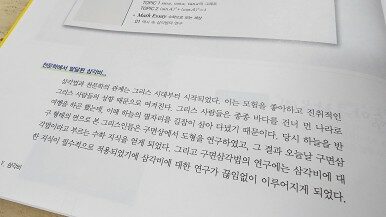 TOPIC 1
TOPIC 2
Math Essay
천문학에서 발달된 삼각비...
삼각법과 천문학의 관계는 그리스 시대부터 시작되었다. 이는 모험을 좋아하고 진취적인
그리스 사람들의 성향 때문으로 여겨진다. 그리스 사람들은 종종 바다를 건너 먼 나라로
여행을 하곤 했는데, 이때 하늘의 별자리를 길잡이 삼아 다녔기 때문이다. 당시 하늘을 반
구 형태의 면으로 본 그리스인들은 구면상에서 도형을 연구하였고, 그 결과 오늘날 구면삼
각법이라고 부르는 수학 지식을 얻게 되었다. 그리고 구면삼각법의 연구에는 삼각비에 대
한 지식이 필수적으로 적용되었기에 삼각비에 대한 연구가 끊임없이 이루어지게 되었다.
삼각비